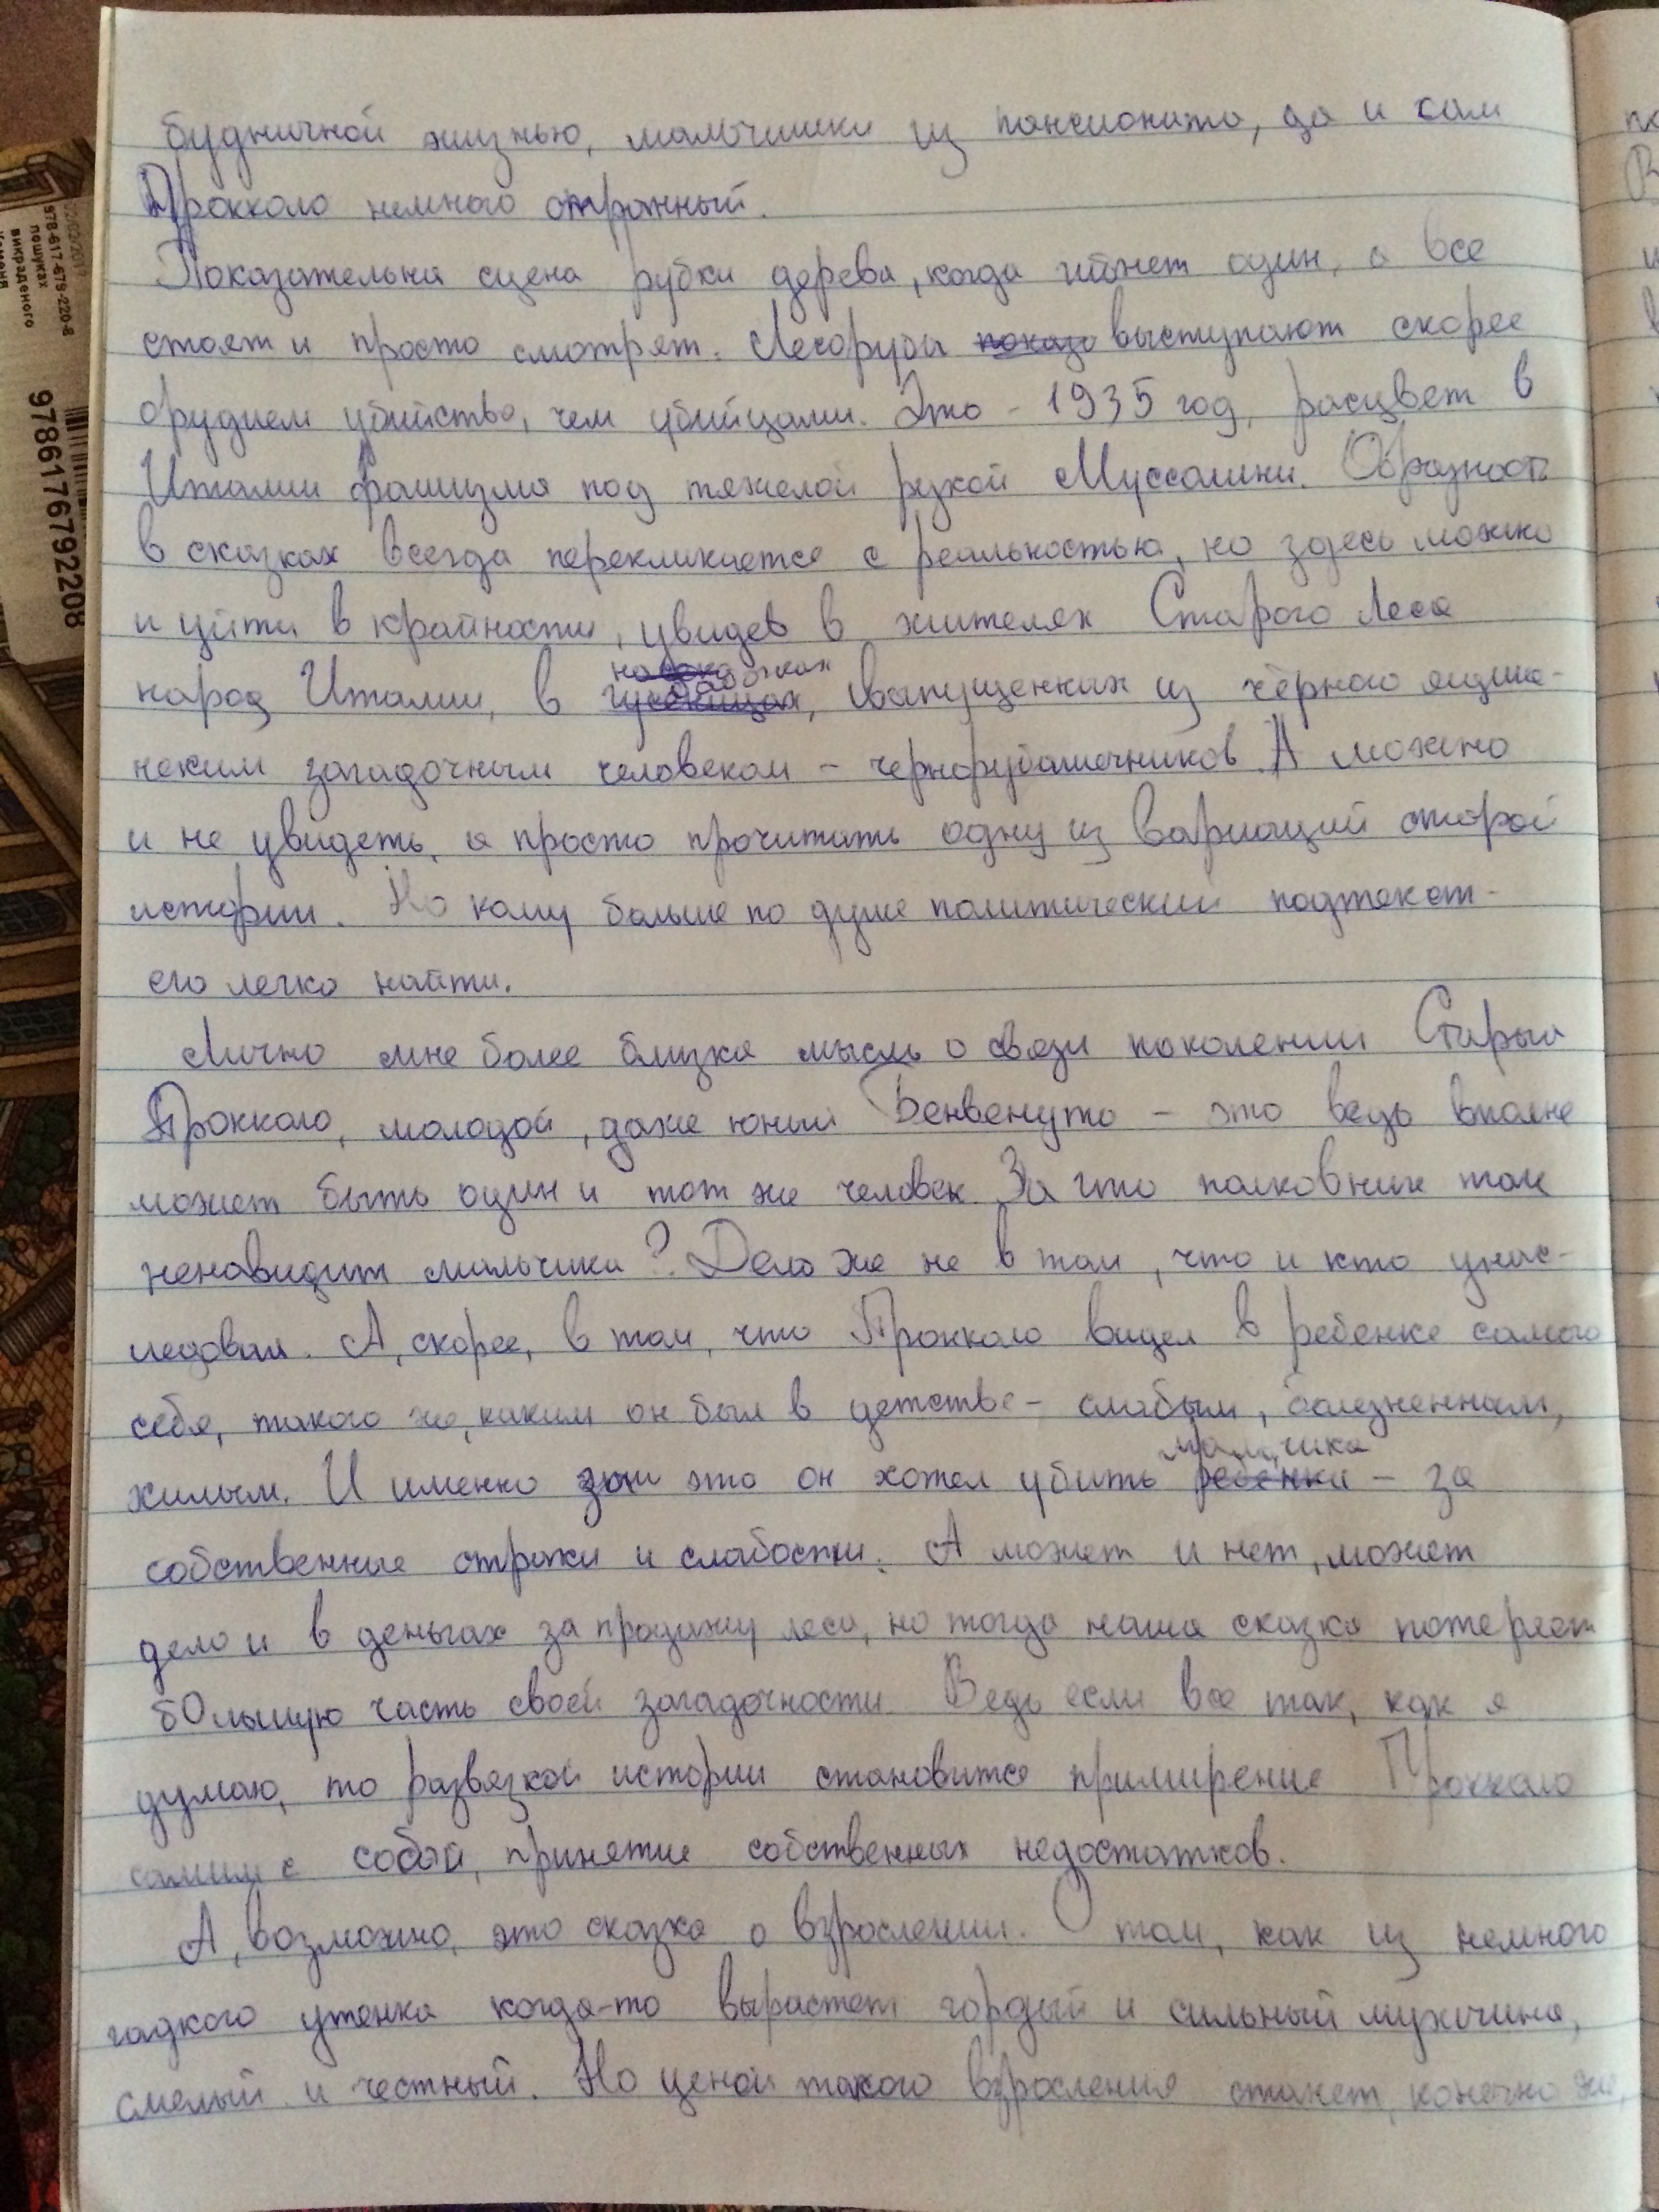 будничной жизнью, мальчишки из пансионата, да и сам
Прокколо немного странный.
Показательна сцена рубки дерева, когда гибнет один, а все
стоят и просто смотрят. Лесорубы показа выступают скорее
орудием убийства, чем убийцами. Это - 1935 год, расцвет в
Италии фашизма под тяжелой рукой Муссолини. Образность
в сказках всегда перекликается с реальностью, но здесь можно
и уйти в крайности, увидев в жителях Старого Леса
народ Италии, в гусеницах, выпущенных из чёрного ящика
неким загадочным человеком - чернорубашечников. А можно
и не увидеть, а просто прочитать одну из вариаций старой
истории. Но кому больше по душе политический подтекст -
его легко найти.
Лично мне более близка мысль о связи поколений Старый
Прокколо, молодой, даже юный Бенвенуто - это ведь вполне
может быть один и тот же человек. За что полковник так
ненавидит мальчика? Дело же не в том, что и кто унас-
ледовал. А, скорее, в том, что Прокколо видел в ребенке самого
себя, такого же, каким он был в детстве - слабым, болезненным,
хилым. И именно за это он хотел убить ребенка мальчика - за
собственные страхи и слабости. А может и нет, может
дело и в деньгах за продажу леса, но тогда наша сказка потеряет
бОльшую часть своей загадочности. Ведь если все так, как я
думаю, то развязкой истории становится примирение Прокколо
самим с собой, принятие собственных недостатков.
А, возможно, это сказка о взрослении. О том, как из немного
гадкого утенка когда-то вырастет гордый и сильный мужчина,
смелый и честный. Но ценой такого взросления станет, конечно же,
978-617-679-220-8
пошуках
викраденого
9786176792208